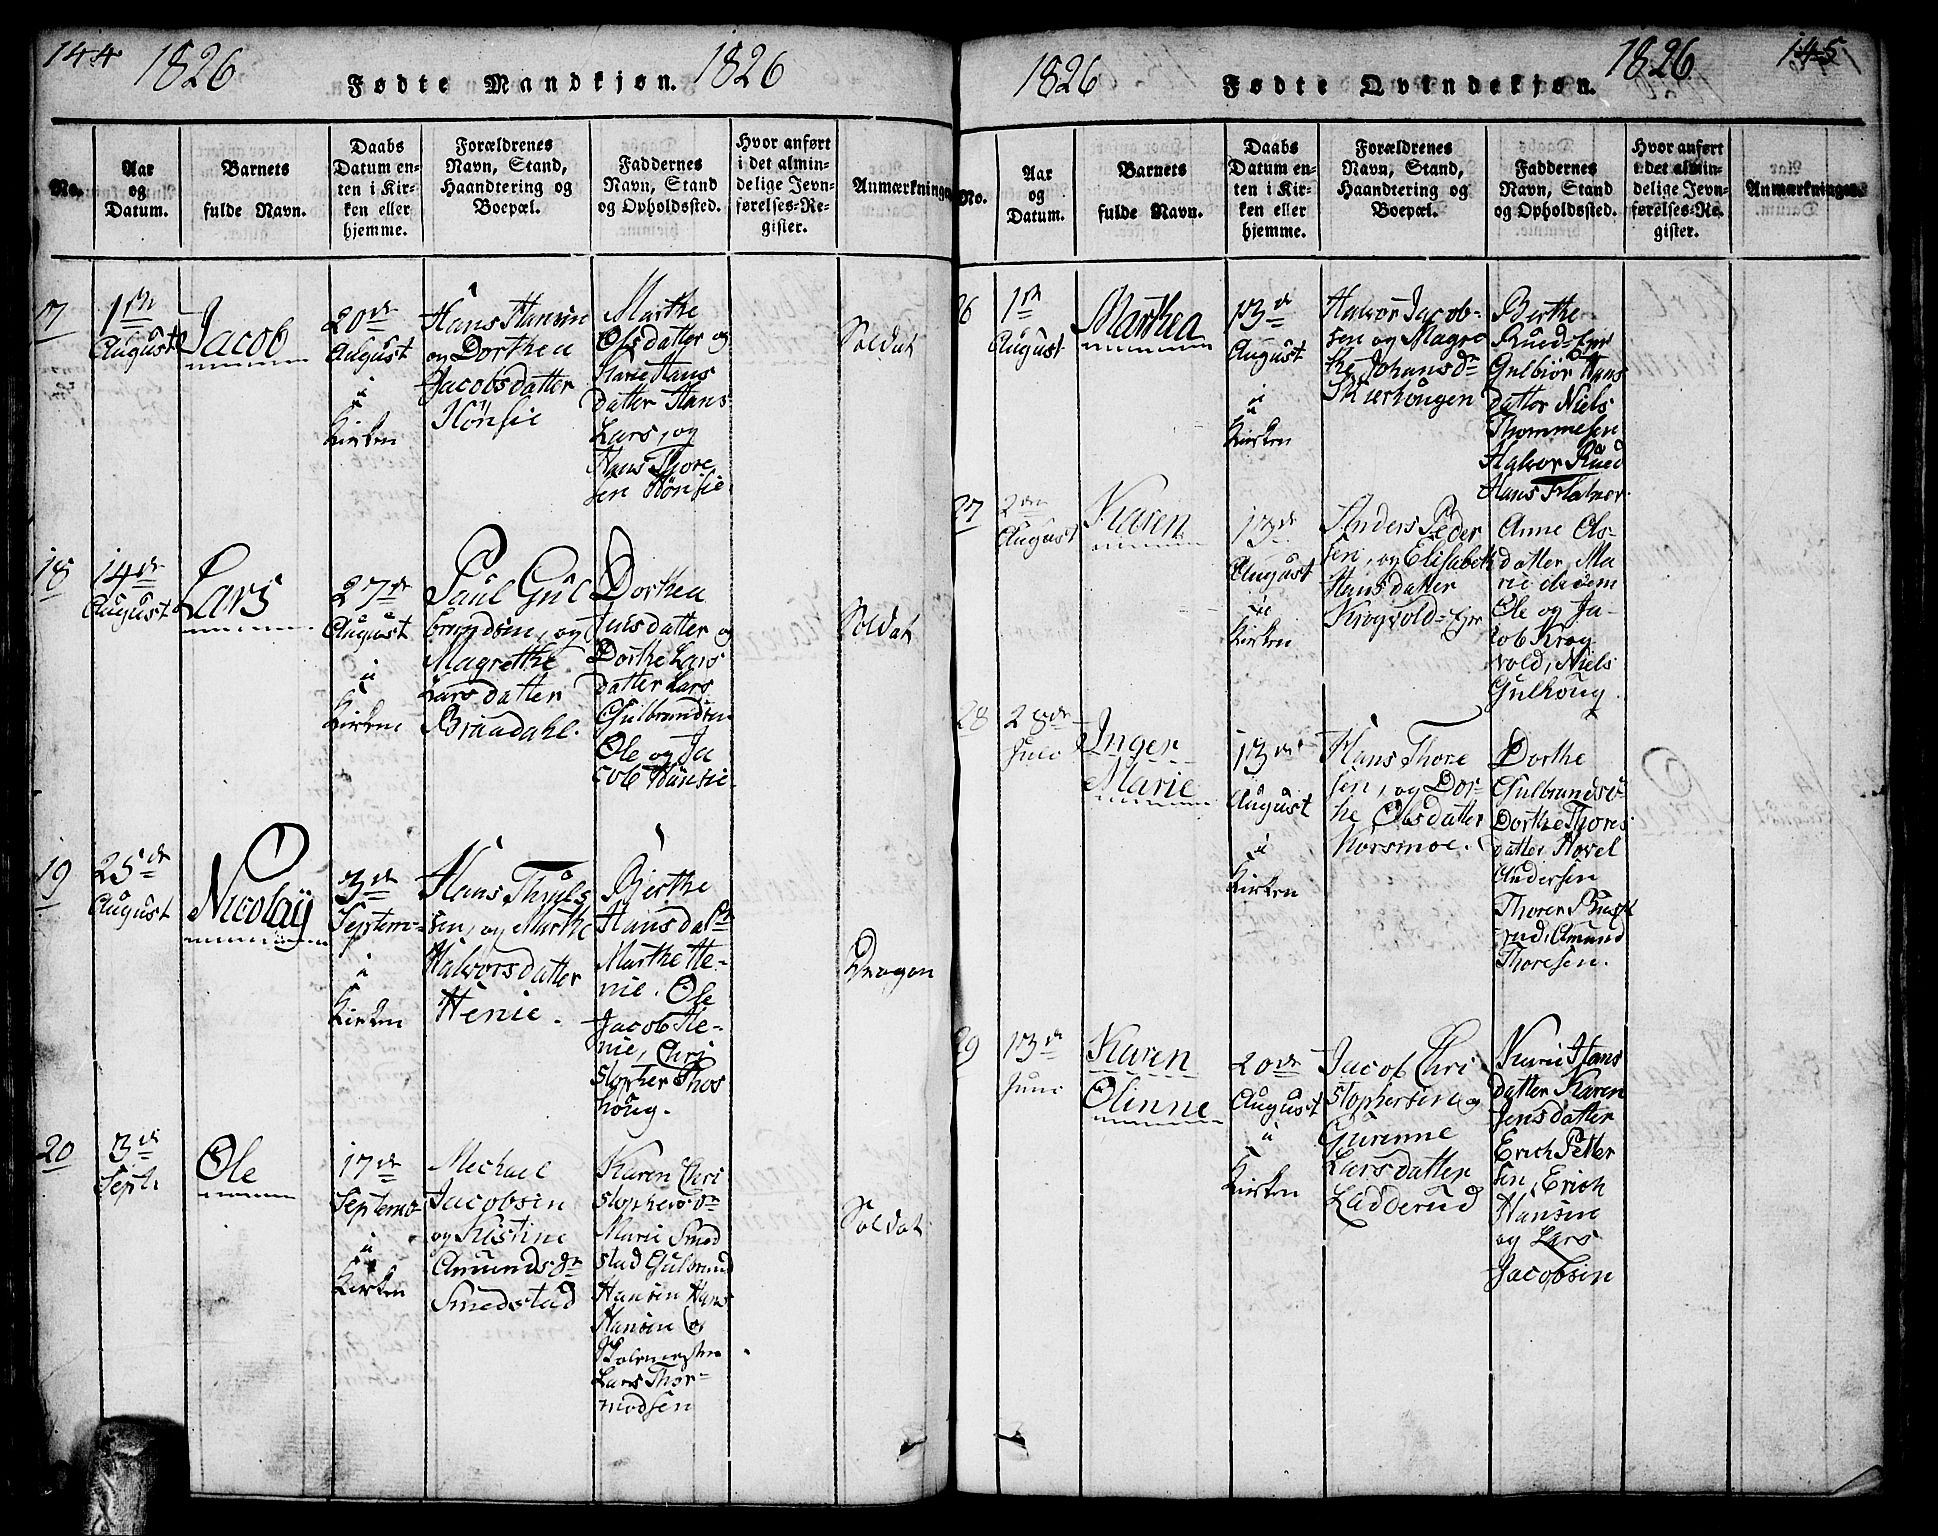 144 1826 Fødte Mandkjøn. 1826
No.
Aar
og
Datum.
Barnets
fulde Navn.
Daabs
Datum en-
ten i Kir-
ken eller
hjemme.
Forældrenes
Navn, Stand,
Haandtering og
Boepæl.
Faddernes
Navn, Stand
og Opholdssted.
Hvor anført
i det almin-
delige Jevn-
førelses-Re-
gister.
Anmærkninger
7
1ste
August
Jacob
20de
August
i
Kirken
Hans Hansen
og Dorthea
Jacobsdatter
Hönsie
Marthe
Olsdatter og
Marie Hans
datter Hans
Lars, og
Hans Thore
sen Hönsie
Soldat
18
14de
August
Lars
27de
August
i
Kirken
Paul Gul
brandsen, og
Magrethe
Larsdatter
Braadahl.
Dorthea
Jensdatter og
Dorthe Lars
datter Lars
Gulbrandsen
Ole og Ja
cob Hönsie.
Soldat
19
25de
August
Nicolay
3de
Septem-
i
Kirken
Hans Thruls
sen, og Marthe
Halvorsdatter
Henie.
Birthe
Hansdatr
Marthe He-
nie. Ole
Jacob He-
nie, Chri
stopher Thos
houg.
Dragon
20
3de
Septr
Ole
17de
Septemb
i
Kirken
Michael
Jacobsen
og Kistine
Amundsdr
Smedstad
Karen Chri
stophersdr
Marie Smed
stad Gulbrand
Hansen Hans
Hansen og
Skolemester
Lars Thor-
modsen
Soldat
1826 Fødte Qvindekjøn. 1826 145
No.
Aar
og
Datum.
Barnets
fulde Navn.
Daabs
Datum en-
ten i Kir-
ken eller
hjemme.
Forældrenes
Navn, Stand,
Haandtering og
Boepæl.
Faddernes
Navn, Stand
og Opholdssted.
Hvor anført
i det almin-
delige Jevn-
førelses-Re-
gister.
Anmærkninger
26
1ste
August
Marthea
13de
August
i
Kirken
Halvor Jacob-
sen og Magre
the Johansdr
Skierhougen
Berthe
Rued-Eje
Gulbiör Hans
datter Niels
Thommesen
Halvor Rued
Hans
27
2den
August
Karen
13de
August
i
Kirken
Anders Peder
sen, og Elisabeth
Hansdatter
Krogvold-Eje
Anne Ols-
datter, Ma
rie
Ole og Ja-
cob Krog
vold, Niels
Gulhoug.
28
28de
Juli
Inger
Marie
13de
August
i
Kirken
Hans Thore
sen, og Dor-
the Olsdatter
Korsmoe.
Dorthe
Gulbrandsd-
Dorthe Thores
datter Hovel
Andersen
Thorer Bust
rud, Amund
Thoresen.
29
13de
Juni
Karen
Olinne
20de
August
i
Kirken
Jacob Chri
stophersen og
Gurinne
Larsdatter
Ladderud
Karie Hans
datter Karen
Jensdatter
Erich Petter
sen, Erich
Hansen
og Lars
Jacobsen